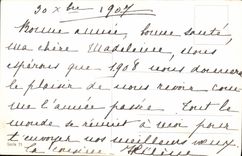 30 Xbre 1907
Bonne année, bonne santé,
ma chère Madeleine, nous
espérons que 1908 nous donnera
le plaisir de nous revoir com
me l'année passée. Tout le
monde se réunit à moi pour
t'envoyer nos meilleurs vœux
La cousine
Série 71